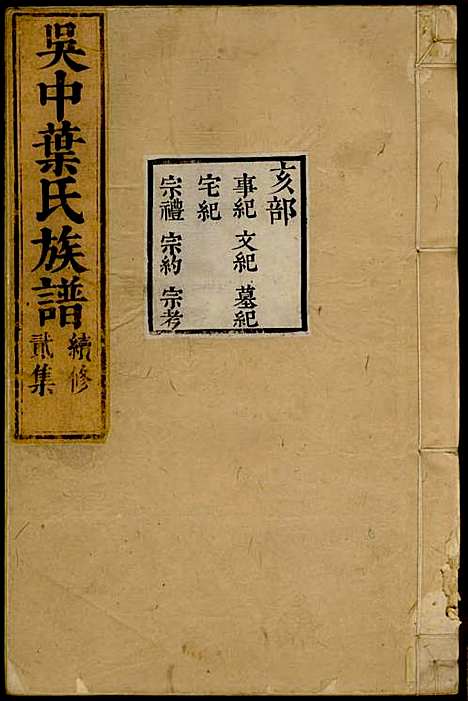 吳中葉氏族譜
續修
貳集
亥部
事紀 文紀 墓紀
宅紀
宗禮 宗約 宗考